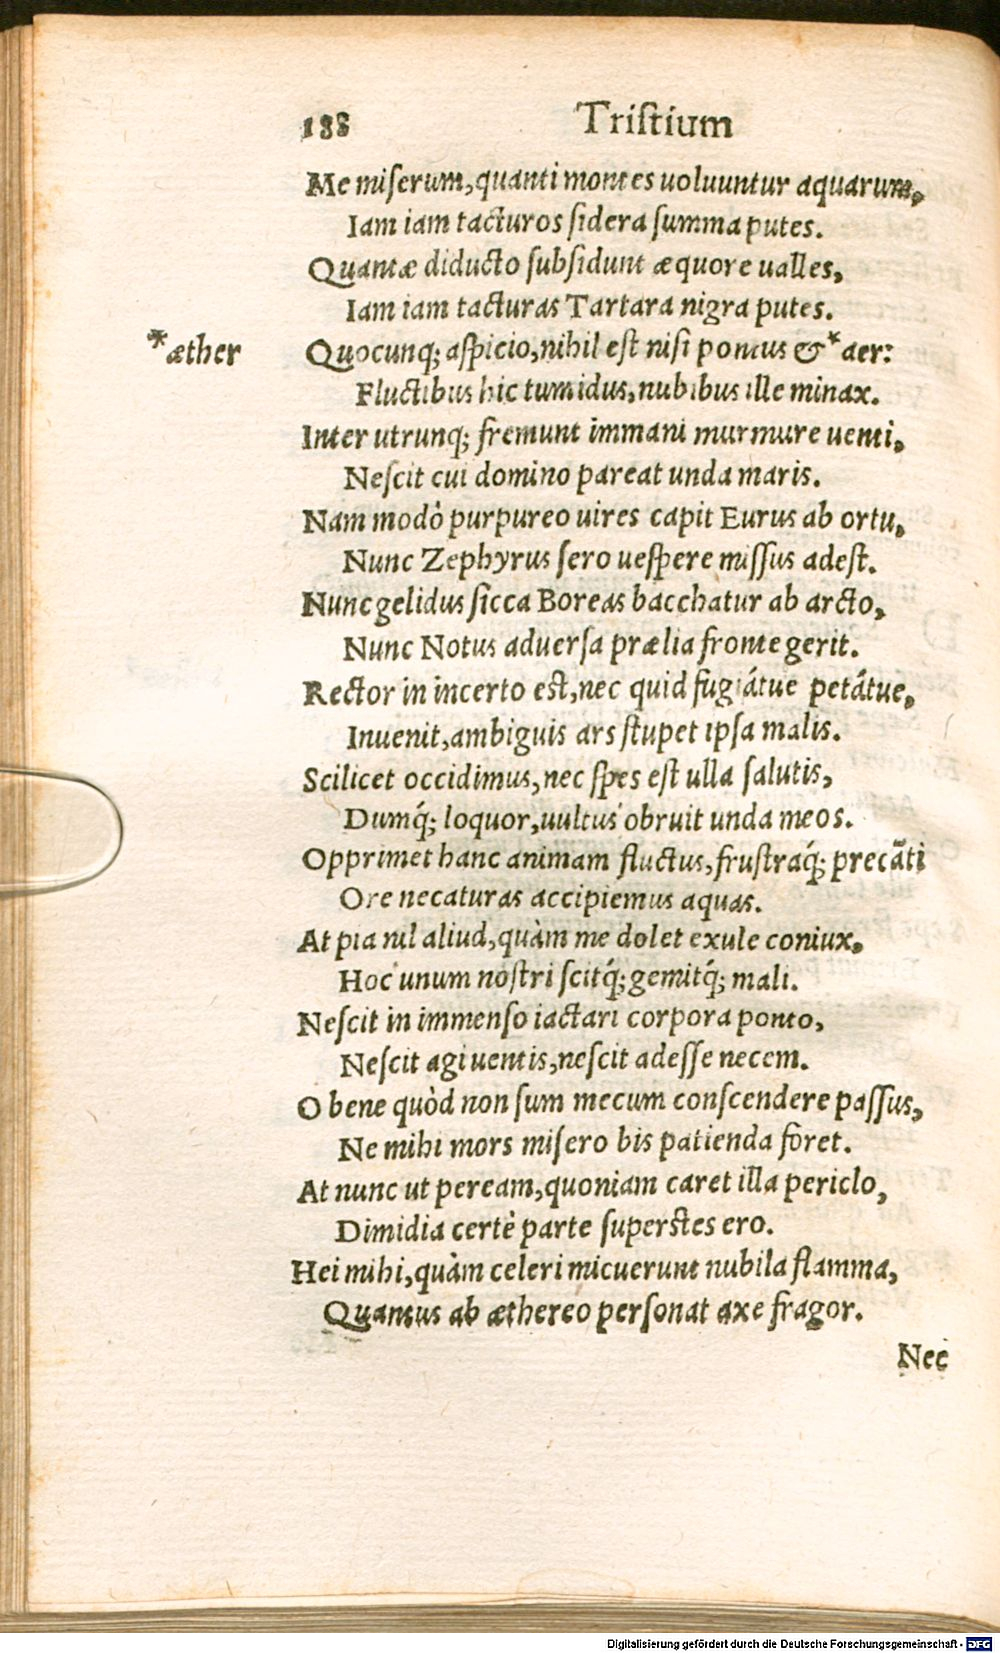 188 Tristium
Me miserum, quanti montes uoluuntur aquarum,
Iam iam tacturos sidera summa putes.
Quantæ diducto subsidunt æquore ualles,
Iam iam tacturas Tartara nigra putes.
*æther Quocunq; aspicio, nihil est nisi pontus & *aer:
Fluctibus hic tumidus, nubibus ille minax.
Inter utrunq; fremunt immani murmure uenti,
Nescit cui domino pareat unda maris.
Nam modò purpureo uires capit Eurus ab ortu,
Nunc Zephyrus sero uespere missus adest.
Nunc gelidus sicca Boreas bacchatur ab arcto,
Nunc Notus aduersa prælia fronte gerit.
Rector in incerto est, nec quid fugiátue petâtue,
Inuenit, ambiguis ars stupet ipsa malis.
Scilicet occidimus, nec spes est ulla salutis,
Dumq́; loquor, uultus obruit unda meos.
Opprimet hanc animam fluctus, frustraq́; precãti
Ore necaturas accipiemus aquas.
At pia nil aliud, quàm me dolet exule coniux,
Hoc unum nostri scitq́; gemitq́; mali.
Nescit in immenso iactari corpora ponto,
Nescit agi uentis, nescit adesse necem.
O bene quòd non sum mecum conscendere passus,
Ne mihi mors misero bis patienda foret.
At nunc ut peream, quoniam caret illa periclo,
Dimidia certè parte superstes ero.
Hei mihi, quàm celeri micuerunt nubila flamma,
Quantus ab æthereo personat axe fragor.
Nec
Digitalisierung gefördert durch die Deutsche Forschungsgemeinschaft - DFG